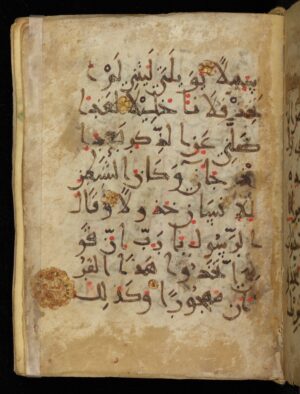 سبيلا يويلتى ليتنى لم ا
تخذ فلانا خليلا لقد ا
ضلنى عن الذكر بعد ا
ذ جانى وكان الشيطن
للانسن خذولا وقال
الرسول يا رب ان قو
مى اتخذوا هذا القر
ان مهجورا وكذلك